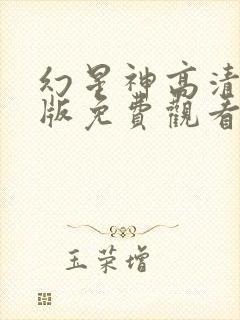 幻星神高清
版免費觀看
玉荣增